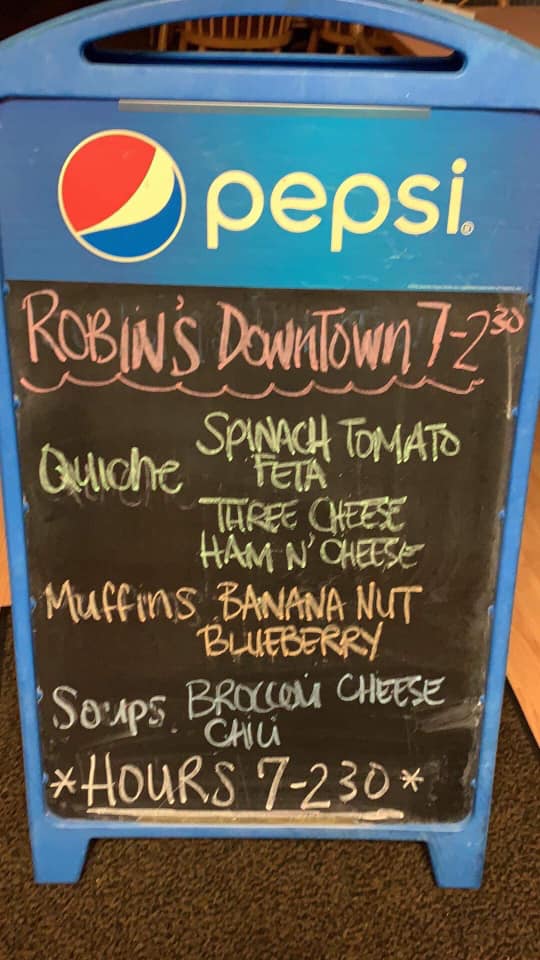 pepsi®
ROBIN'S DOWNTOWN 7-2 30
Quiche SPINACH TOMATO
FETA
THREE CHEESE
HAM N' CHEESE
Muffins BANANA NUT
BLUEBERRY
Soups BROCCOLI CHEESE
CHILI
*HOURS 7-230*